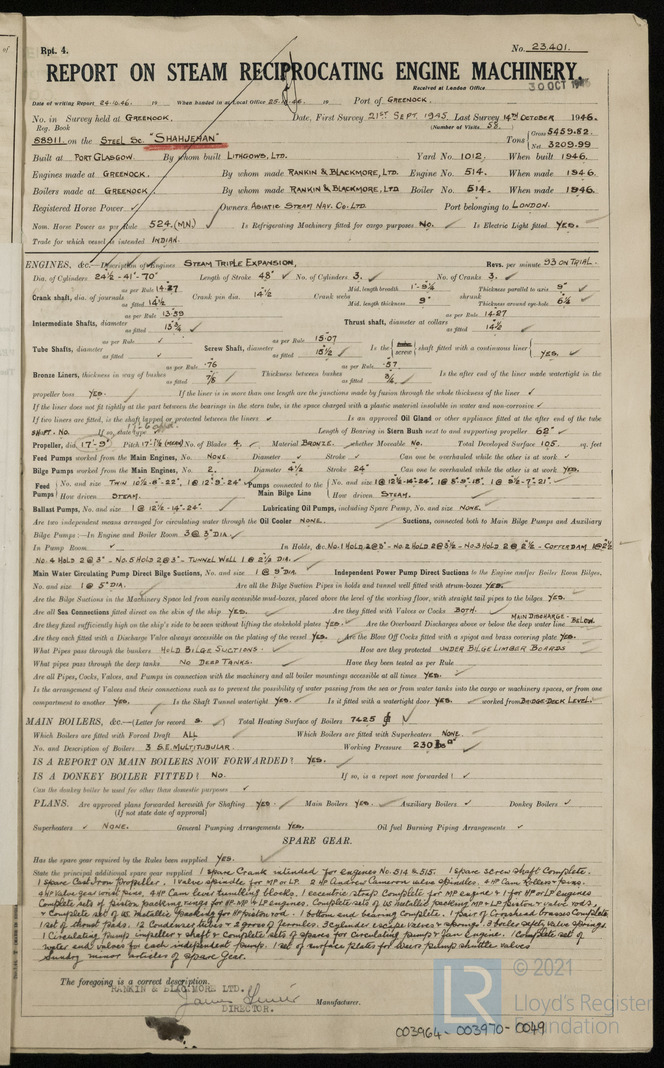 Rpt. 4.
No. 23401.
REPORT ON STEAM RECIPROCATING ENGINE MACHINERY.
Received at London Office 30 OCT 1946
Date of writing Report 24.10.46. 19 When handed in at Local Office 25.10.46. 19 Port of GREENOCK.
No. in Survey held at GREENOCK. Date, First Survey 21ST SEPT. 1945 Last Survey 14TH OCTOBER 1946.
Reg. Book (Number of Visits 58.
88911 on the STEEL SC. "SHAHJEHAN" Tons Gross 5459.82.
Net 3209.99
Built at PORT GLASGOW By whom built LITHGOWS, LTD. Yard No. 1012. When built 1946.
Engines made at GREENOCK. By whom made RANKIN & BLACKMORE, LTD. Engine No. 514. When made 1946.
Boilers made at GREENOCK. By whom made RANKIN & BLACKMORE, LTD Boiler No. 514. When made 1946.
Registered Horse Power Owners ASIATIC STEAM NAV. CO. LTD. Port belonging to LONDON.
Nom. Horse Power as per Rule 524 (MN) Is Refrigerating Machinery fitted for cargo purposes NO. Is Electric Light fitted YES.
Trade for which vessel is intended INDIAN.
ENGINES, &c.—Description of Engines STEAM TRIPLE EXPANSION. Revs. per minute 93 ON TRIAL.
Dia. of Cylinders 24½ - 41" - 70" Length of Stroke 48" No. of Cylinders 3. No. of Cranks 3.
Crank shaft, dia. of journals as per Rule 14.27 as fitted 14½ Crank pin dia. 14½" Crank webs Mid. length breadth Mid. length thickness 9" shrunk Thickness parallel to axis 9" Thickness around eye-hole
Intermediate Shafts, diameter as per Rule 13.59 as fitted 13¾ Thrust shaft, diameter at collars as per Rule 14.27 as fitted 14½"
Tube Shafts, diameter as per Rule as fitted Screw Shaft, diameter as per Rule 15.07 as fitted 15½ Is the screw shaft fitted with a continuous liner YES.
Bronze Liners, thickness in way of bushes as per Rule .76 as fitted 7/8 Thickness between bushes as per Rule .57 as fitted ¾ Is the after end of the liner made watertight in the
propeller boss YES. If the liner is in more than one length are the junctions made by fusion through the whole thickness of the liner
If the liner does not fit tightly at the part between the bearings in the stern tube, is the space charged with a plastic material insoluble in water and non-corrosive
If two liners are fitted, is the shaft lapped or protected between the liners Is an approved Oil Gland or other appliance fitted at the after end of the tube
shaft. NO. If so, state type Length of Bearing in Stern Bush next to and supporting propeller 62"
Propeller, dia. 17'-9" Pitch (MEAN) No. of Blades 4. Material BRONZE. whether Moveable NO. Total Developed Surface 105. sq. feet
Feed Pumps worked from the Main Engines, No. NONE. Diameter Stroke Can one be overhauled while the other is at work
Bilge Pumps worked from the Main Engines, No. 2. Diameter 4½ Stroke 24" Can one be overhauled while the other is at work YES.
Feed Pumps No. and size How driven STEAM. Pumps connected to the Main Bilge Line No. and size How driven STEAM.
Ballast Pumps, No. and size 1 @ 12½-14-24. Lubricating Oil Pumps, including Spare Pump, No. and size NONE.
Are two independent means arranged for circulating water through the Oil Cooler NONE. Suctions, connected both to Main Bilge Pumps and Auxiliary
Bilge Pumps:—In Engine and Boiler Room 3 @ 3" DIA.
In Pump Room In Holds, &c. NO.1 HOLD 2@3" - NO.2 HOLD 2@3½ - NO.3 HOLD 2@2½ - COFFERDAM 1@2½
NO.4 HOLD 2@3" - NO.5 HOLD 2@3" - TUNNEL WELL 1@2½ DIA.
Main Water Circulating Pump Direct Bilge Suctions, No. and size 1 @ 9" DIA. Independent Power Pump Direct Suctions to the Engine and/or Boiler Room Bilges,
No. and size. 1 @ 5" DIA. Are all the Bilge Suction Pipes in holds and tunnel well fitted with strum-boxes YES.
Are the Bilge Suctions in the Machinery Space led from easily accessible mud-boxes, placed above the level of the working floor, with straight tail pipes to the bilges YES.
Are all Sea Connections fitted direct on the skin of the ship YES. Are they fitted with Valves or Cocks BOTH.
Are they fixed sufficiently high on the ship's side to be seen without lifting the stokehold plates YES. Are the Overboard Discharges above or below the deep water line MAIN DISCHARGE BELOW
Are they each fitted with a Discharge Valve always accessible on the plating of the vessel YES. Are the Blow Off Cocks fitted with a spigot and brass covering plate YES.
What Pipes pass through the bunkers HOLD BILGE SUCTIONS. How are they protected UNDER BILGE LIMBER BOARDS
What pipes pass through the deep tanks NO DEEP TANKS. Have they been tested as per Rule
Are all Pipes, Cocks, Valves, and Pumps in connection with the machinery and all boiler mountings accessible at all times YES.
Is the arrangement of Valves and their connections such as to prevent the possibility of water passing from the sea or from water tanks into the cargo or machinery spaces, or from one
compartment to another YES. Is the Shaft Tunnel watertight YES. Is it fitted with a watertight door. YES. worked from BRIDGE DECK LEVEL.
MAIN BOILERS, &c.—(Letter for record S. ) Total Heating Surface of Boilers 7425
Which Boilers are fitted with Forced Draft ALL Which Boilers are fitted with Superheaters NONE.
No. and Description of Boilers 3 S.E. MULTITUBULAR. Working Pressure 230 lbs □"
IS A REPORT ON MAIN BOILERS NOW FORWARDED? YES.
IS A DONKEY BOILER FITTED? NO. If so, is a report now forwarded?
Can the donkey boiler be used for other than domestic purposes
PLANS. Are approved plans forwarded herewith for Shafting YES. Main Boilers YES. Auxiliary Boilers Donkey Boilers
(If not state date of approval)
Superheaters NONE. General Pumping Arrangements YES. Oil fuel Burning Piping Arrangements
SPARE GEAR.
Has the spare gear required by the Rules been supplied YES.
State the principal additional spare gear supplied 1 Spare Crank intended for engines No. 514 & 515. 1 Spare screw shaft complete.
1 Spare Cast Iron Propeller. 1 valve spindle for MP or LP. 2 HP Andrew Cameron valve spindles. 4 HP Cam Rollers & pins.
4 HP Cam lever tumbling blocks. 1 eccentric strap complete for MP engine & 1 for HP or LP engines
Complete sets of piston packing rings for HP. MP & LP engines. Complete sets of US metallic packing MP & LP piston & valve rods,
& Complete set of US Metallic Packing for HP piston rod. 1 bottom end bearing complete. 1 pair of Crosshead brasses Complete
1 set of thrust pads. 12 Condenser tubes & 2 gross of ferrules. 3 cylinder escape valves & springs. 3 boiler safety valve springs.
1 Circulating pump impeller & shaft & Complete sets of spares for Circulating pump & fan engine. 1 Complete set of
water end valves for each independent pump. 1 set of surface plates for weirs pump shuttle valves
Sundry minor articles of spare Gear.
The foregoing is a correct description,
RANKIN & BLACKMORE LTD.
DIRECTOR. Manufacturer.
003964-003970-0049
© 2021
LR
Lloyd's Register
Foundation